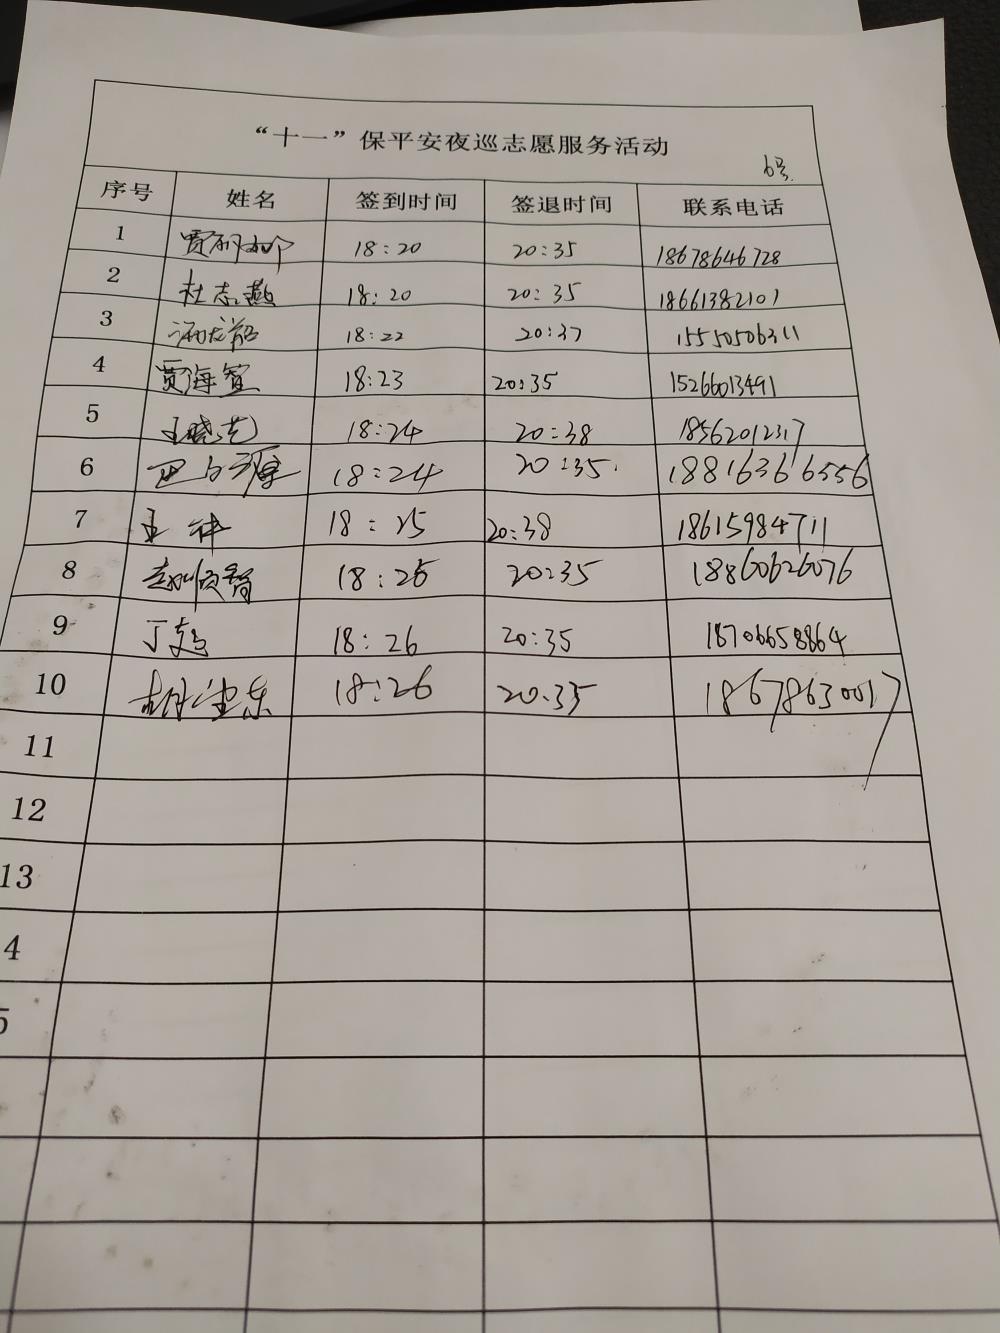 “十一”保平安夜巡志愿服务活动
6号.
序号 姓名 签到时间 签退时间 联系电话
1 18:20 20:35 18678646728
2 杜志燕 18:20 20:35 18661382101
3 18:22 20:37 15550506311
4 贾海萱 18:23 20:35 15266013491
5 王晓艺 18:24 20:38 18562012317
6 18:24 20:35. 18816366556
7 王 18:25 20:38 18615984711
8 赵顺智 18:26 20:35 18860626076
9 丁 18:26 20:35 18706658864
10 18:26 20:35 18678630017
11
12
13
4
5